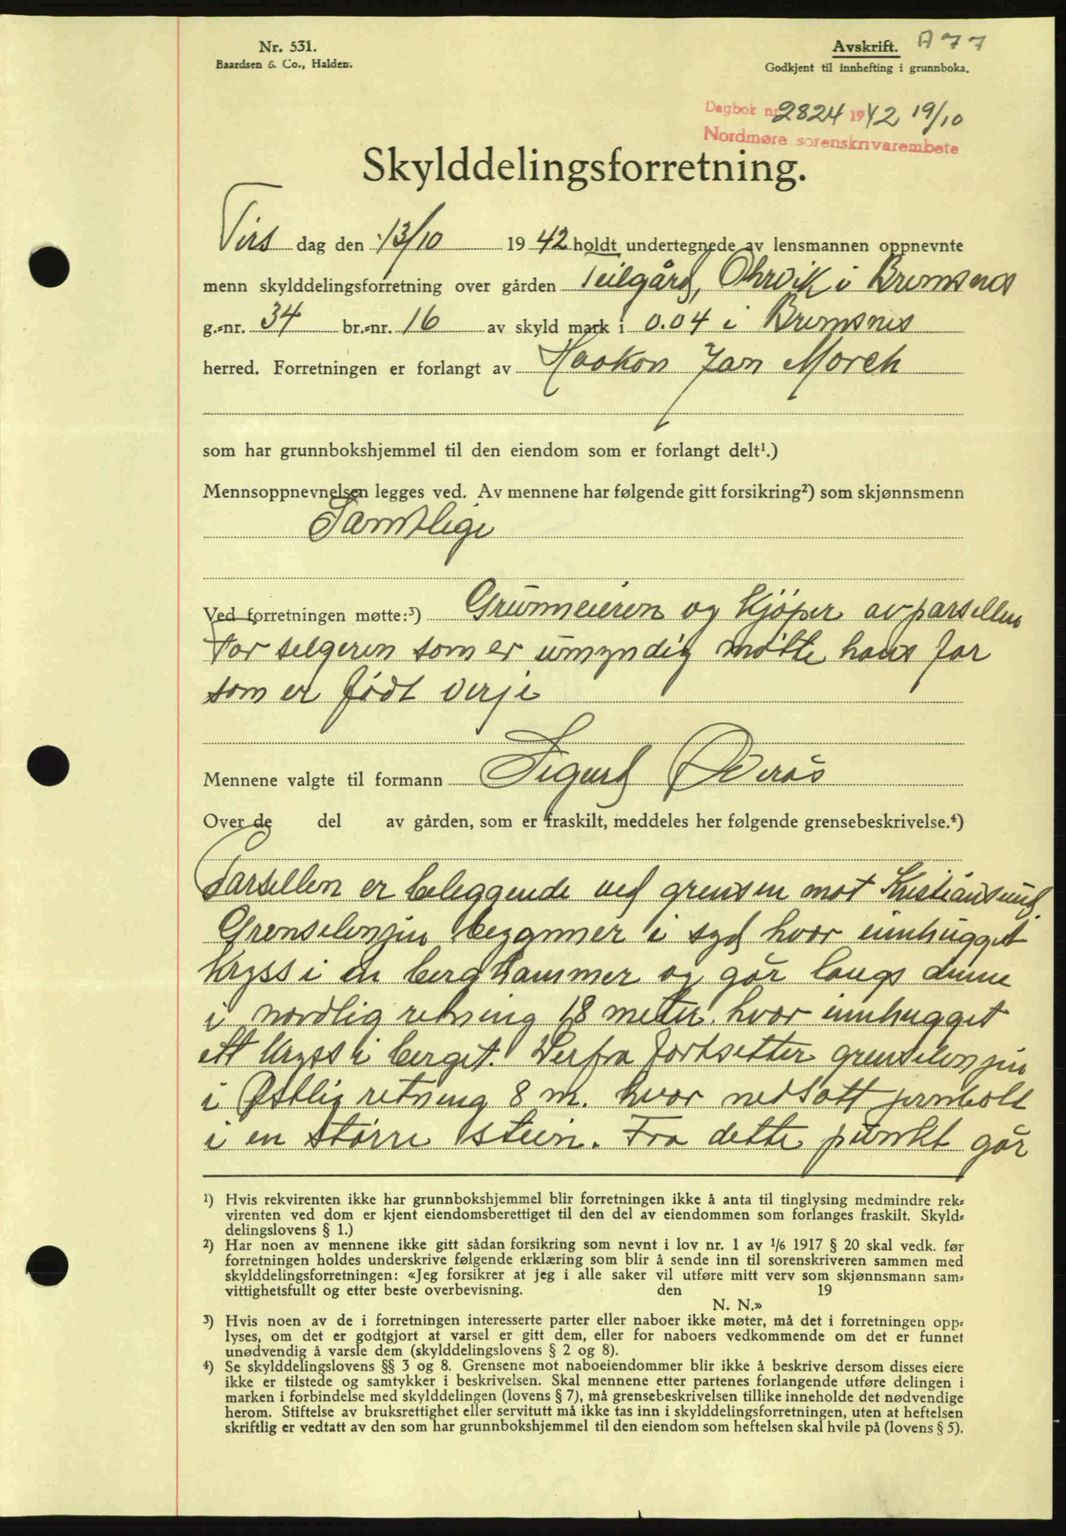 Nr. 531.
Baardsen & Co., Halden.
Avskrift. A 77
Godkjent til innhefting i grunnboka.
Dagbok nr. 2824 1942 19/10
Nordmøre sorenskrivarembete
Skylddelingsforretning.
Tirs dag den 13/10 1942 holdt undertegnede av lensmannen oppnevnte
menn skylddelingsforretning over gården Teilgård, Ohrvik i Bremsnes
g.-nr. 34 br.-nr. 16 av skyld mark i 0.04 i Bremsnes
herred. Forretningen er forlangt av Haakon Jan Morck
som har grunnbokshjemmel til den eiendom som er forlangt delt¹.)
Mennsoppnevnelsen legges ved. Av mennene har følgende gitt forsikring²) som skjønnsmenn
Samtlige
Ved forretningen møtte:³) Grunneieren og kjøper av parsellen
For selgeren som er umyndig møtte hans far
som er født verje
Mennene valgte til formann Sigurd Øverås
Over de del av gården, som er fraskilt, meddeles her følgende grensebeskrivelse.⁴)
Parsellen er beleggende ved grensen mot Kristiansund.
Grenselinjen begynner i syd hvor innhugget
kryss i en berghammer og går langs denne
i nordlig retning 18 meter. hvor innhugget
ett kryss i berget. Derfra fortsetter grenselinjen
i Østlig retning 8 m. hvor nedsatt jernbolt
i en større stein. Fra dette punkt går
¹) Hvis rekvirenten ikke har grunnbokshjemmel blir forretningen ikke å anta til tinglysing medmindre rek-
virenten ved dom er kjent eiendomsberettiget til den del av eiendommen som forlanges fraskilt. Skyld-
delingslovens § 1.)
²) Har noen av mennene ikke gitt sådan forsikring som nevnt i lov nr. 1 av 1/6 1917 § 20 skal vedk. før
forretningen holdes underskrive følgende erklæring som blir å sende inn til sorenskriveren sammen med
skylddelingsforretningen: «Jeg forsikrer at jeg i alle saker vil utføre mitt verv som skjønnsmann sam-
vittighetsfullt og etter beste overbevisning. den 19
N. N.»
³) Hvis noen av de i forretningen interesserte parter eller naboer ikke møter, må det i forretningen opp-
lyses, om det er godtgjort at varsel er gitt dem, eller for naboers vedkommende om det er funnet
unødvendig å varsle dem (skylddelingslovens § 2 og 8).
⁴) Se skylddelingslovens §§ 3 og 8. Grensene mot naboeiendommer blir ikke å beskrive dersom disses eiere
ikke er tilstede og samtykker i beskrivelsen. Skal mennene etter partenes forlangende utføre delingen i
marken i forbindelse med skylddelingen (lovens § 7), må grensebeskrivelsen tillike inneholde det nødvendige
herom. Stiftelse av bruksrettighet eller servitutt må ikke tas inn i skylddelingsforretningen, uten at heftelsen
skriftlig er vedtatt av den som har grunnbokshjemmel til den eiendom som heftelsen skal hvile på (lovens § 5).